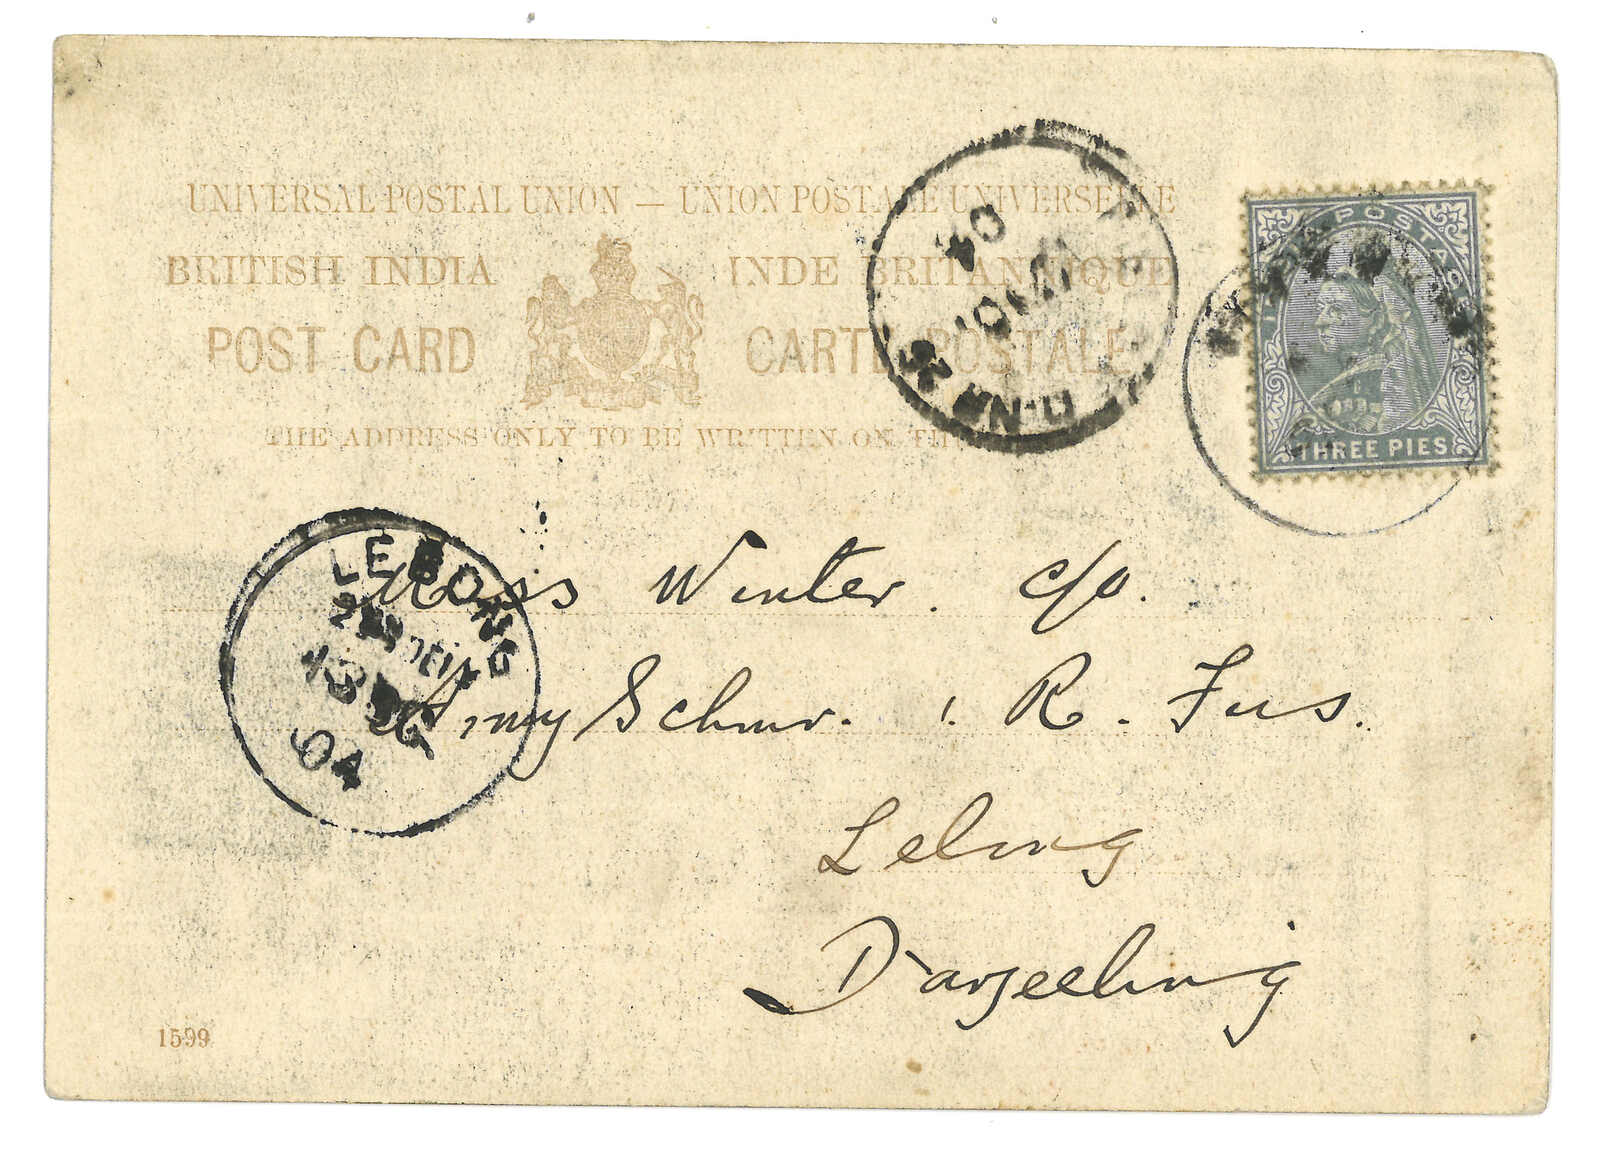 UNIVERSAL POSTAL UNION — UNION POSTALE UNIVERSELLE
BRITISH INDIA INDE BRITANNIQUE
POST CARD CARTE POSTALE
THE ADDRESS ONLY TO BE WRITTEN ON
04
INDIA POSTAGE
THREE PIES
LEBONG
13
04
Winter. c/o.
Army Schmr. 1. R. Fus.
Lebong
Darjeeling
1599